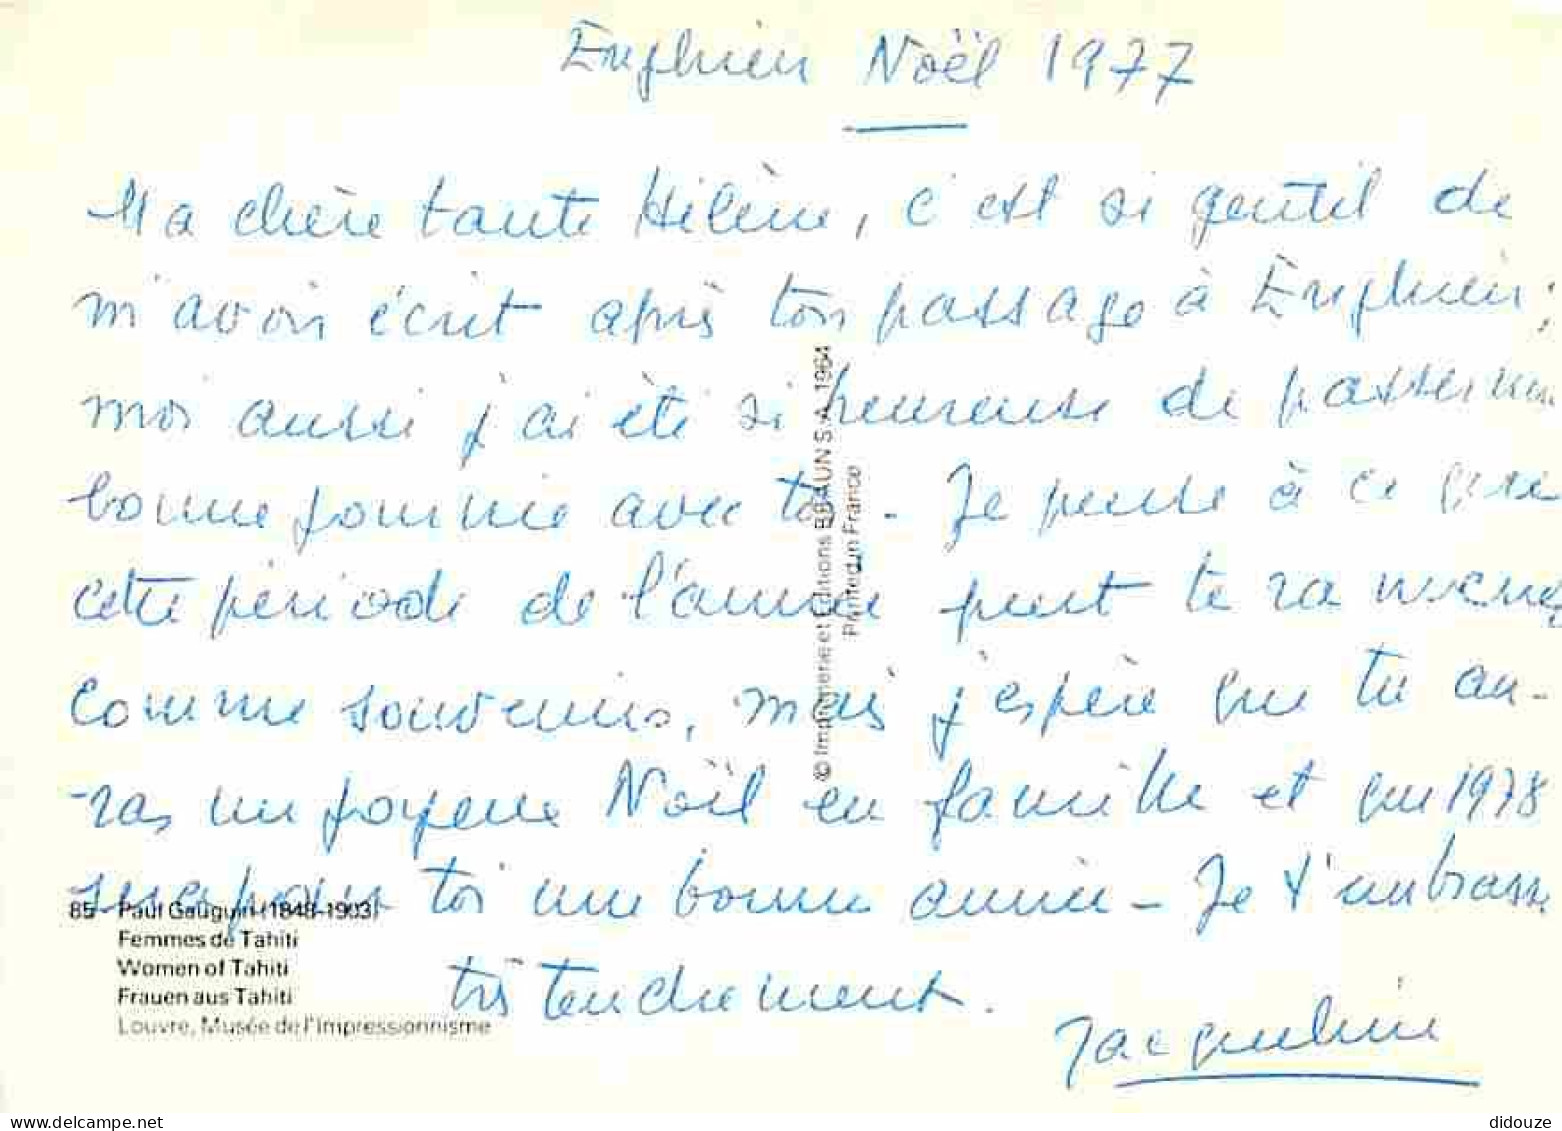 Enghien Noël 1977
Ma chère tante Hélène, c'est si gentil de
m'avoir écrit après ton passage à Enghien ;
moi aussi j'ai été si heureuse de passer une
bonne journée avec toi - Je pense à ce que
cette période de l'année peut te ramener
comme souvenirs, mais j'espère que tu au-
-ras un joyeux Noël en famille et que 1978
sera pour toi une bonne année - Je t'embrasse
très tendrement.
Jacqueline
85 - Paul Gauguin (1848-1903)
Femmes de Tahiti
Women of Tahiti
Frauen aus Tahiti
Louvre, Musée de l'Impressionnisme
© Imprimerie et Editions BRAUN S.A. 1964
Printed in France
delcampe.net
didouze